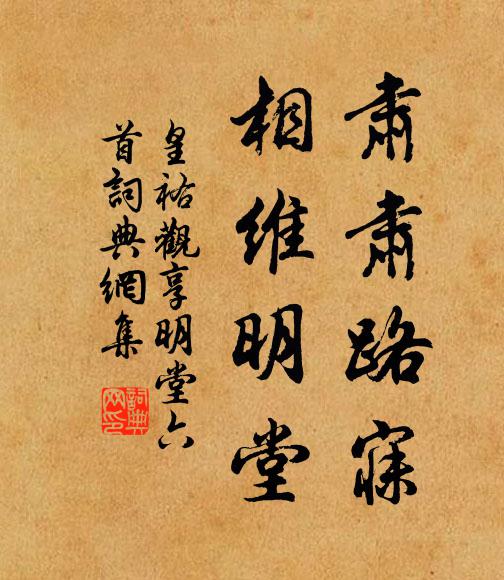 肅肅路寢
相維明堂
皇祐觀享明堂六
首詞典網集
詞典
网印